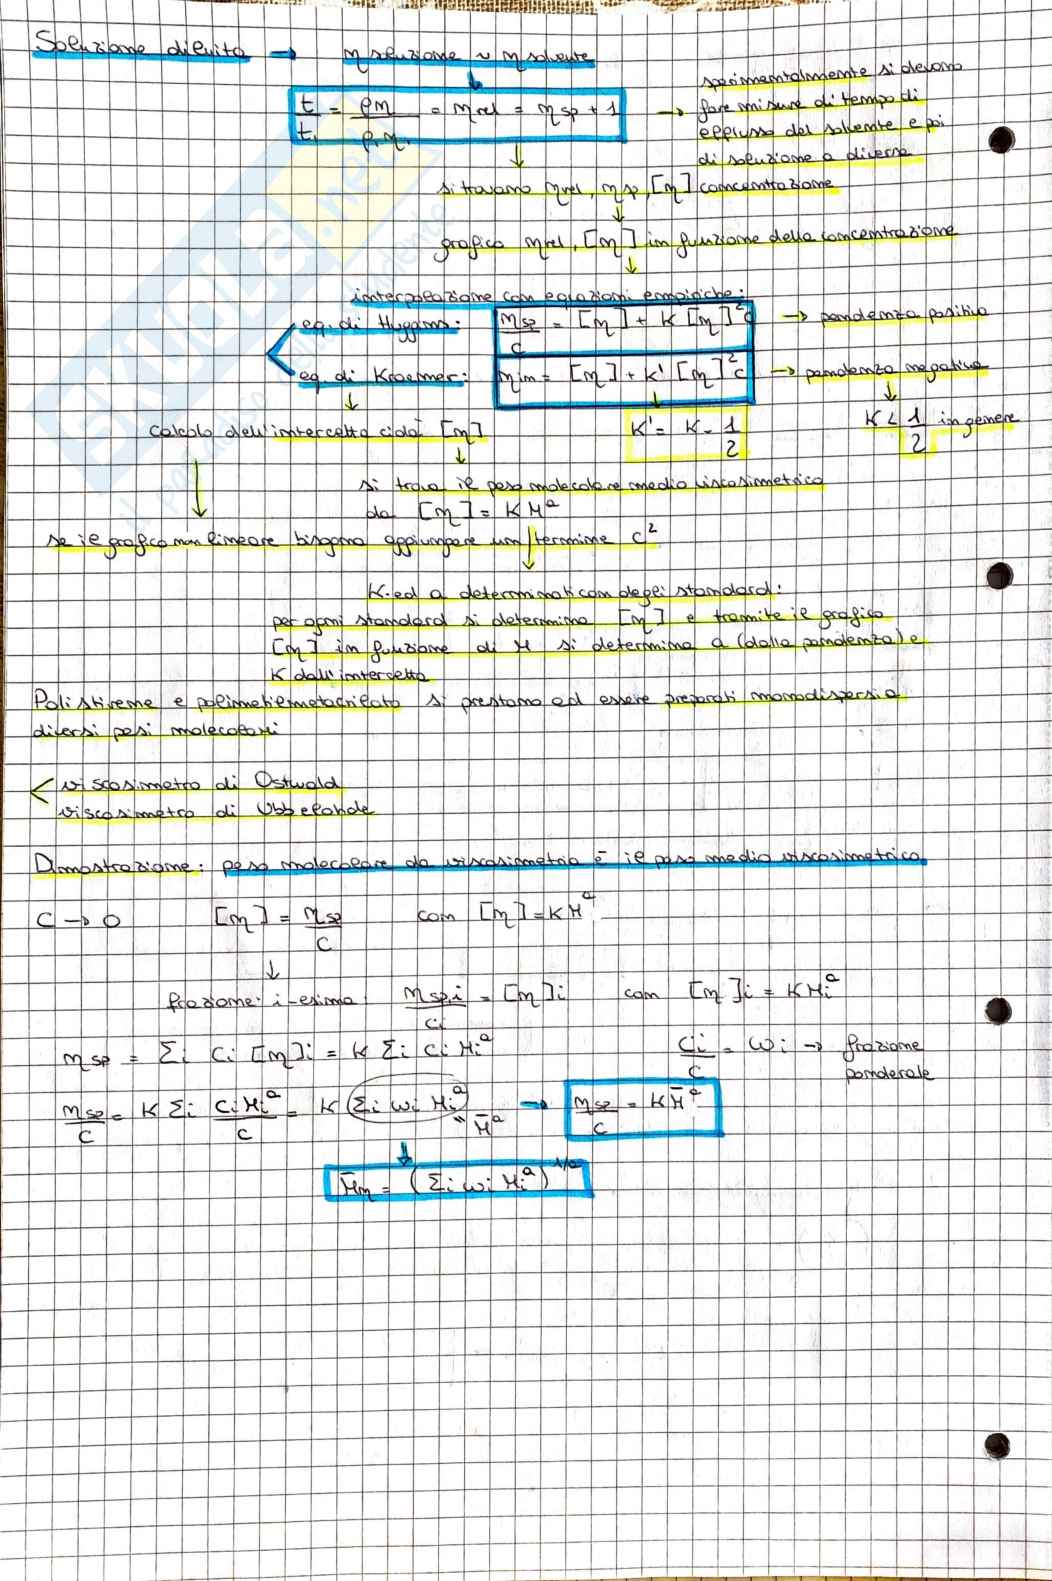 Soluzione diluita → η soluzione ~ η solvente
t/t₁ = ρη/ρ₁η₁ = ηrel = ηsp + 1 → sperimentalmente si devono
fare misure di tempo di
efflusso del solvente e poi
di soluzione a diverse
si trovano ηrel, ηsp, [η] concentrazione
grafico ηrel, [η] in funzione della concentrazione
interpolazione con equazioni empiriche:
eq. di Huggins: ηsp/c = [η] + K [η]²c → pendenza positiva
eq. di Kraemer: ηin = [η] + K' [η]²c → pendenza negativa
calcolo dell'intercetta cioè [η] K' = K - 1/2 K < 1/2 in genere
si trova il peso molecolare medio viscosimetrico
da [η] = KMᵃ
se il grafico non lineare bisogna aggiungere un termine c²
K ed a determinati con degli standard:
per ogni standard si determina [η] e tramite il grafico
[η] in funzione di M si determina a (dalla pendenza) e
K dall'intercetta
Polistirene e polimetilmetacrilato si prestano ad essere preparati monodispersi a
diversi pesi molecolari
viscosimetro di Ostwald
viscosimetro di Ubbelohde
Dimostrazione: peso molecolare da viscosimetria è il peso medio viscosimetrico
C → 0 [η] = ηsp/c con [η] = KMᵃ
frazione i-esima: ηsp,i/ci = [η]i con [η]i = KMiᵃ
ηsp = Σi ci [η]i = K Σi ci Miᵃ ci/c = ωi → frazione
ponderale
ηsp/c = K Σi ciMiᵃ/c = K Σi ωi Miᵃ → ηsp/c = KM̄ᵃ
" M̄ᵃ
M̄η = (Σi ωi Miᵃ)^1/a
SKUOLA.net